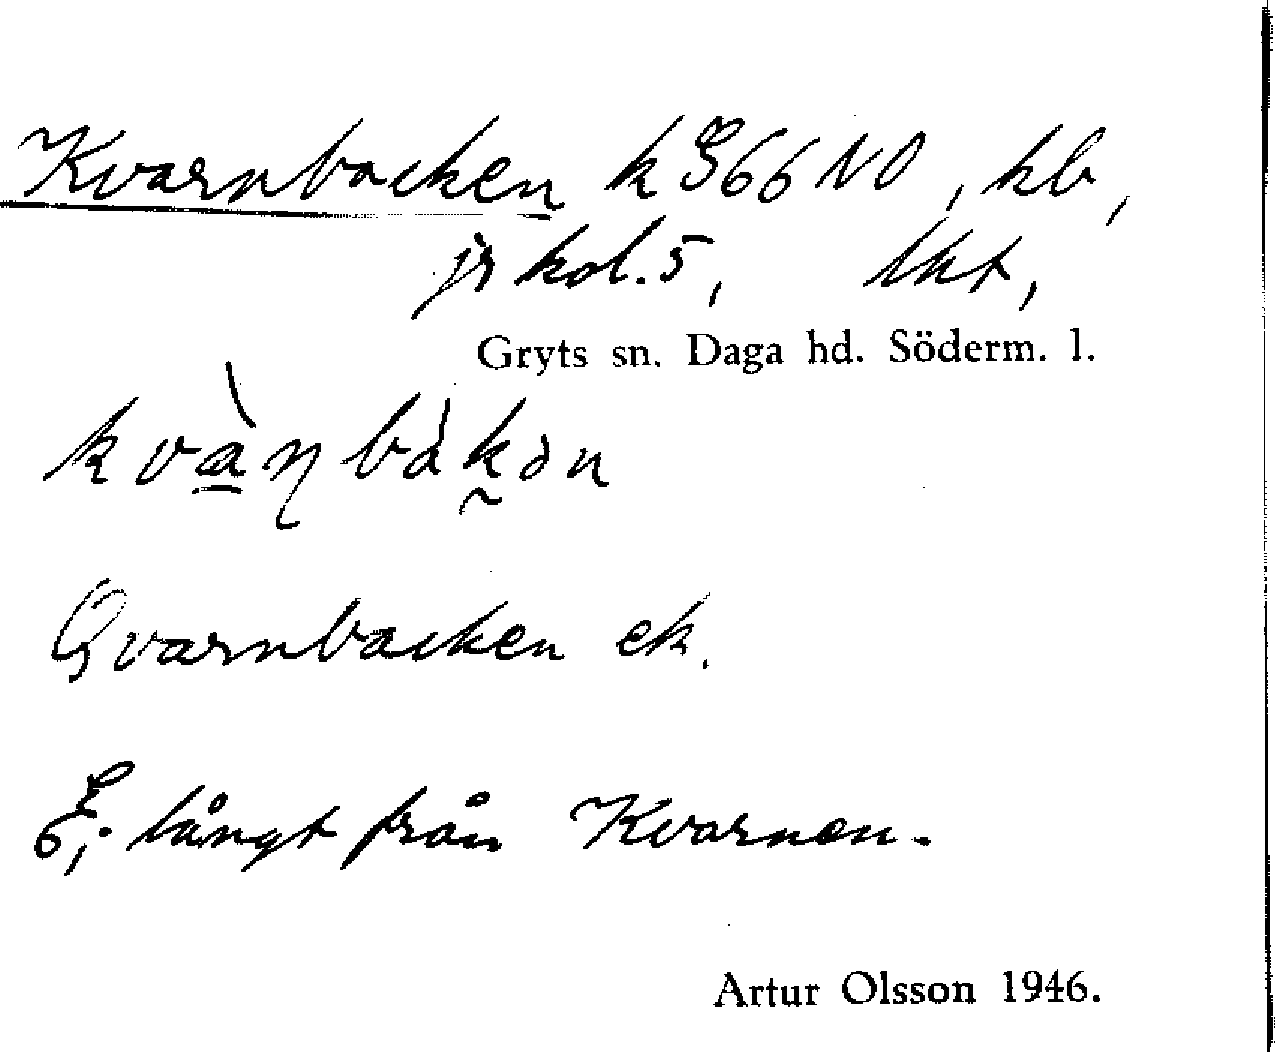 Kvarnbacken k S66 NO, kb,
jr kol. 5, lkt,
Gryts sn. Daga hd. Söderm. l.
kvàṇbàkən
Qvarnbacken ek.
långt från Kvarnen.
Artur Olsson 1946.